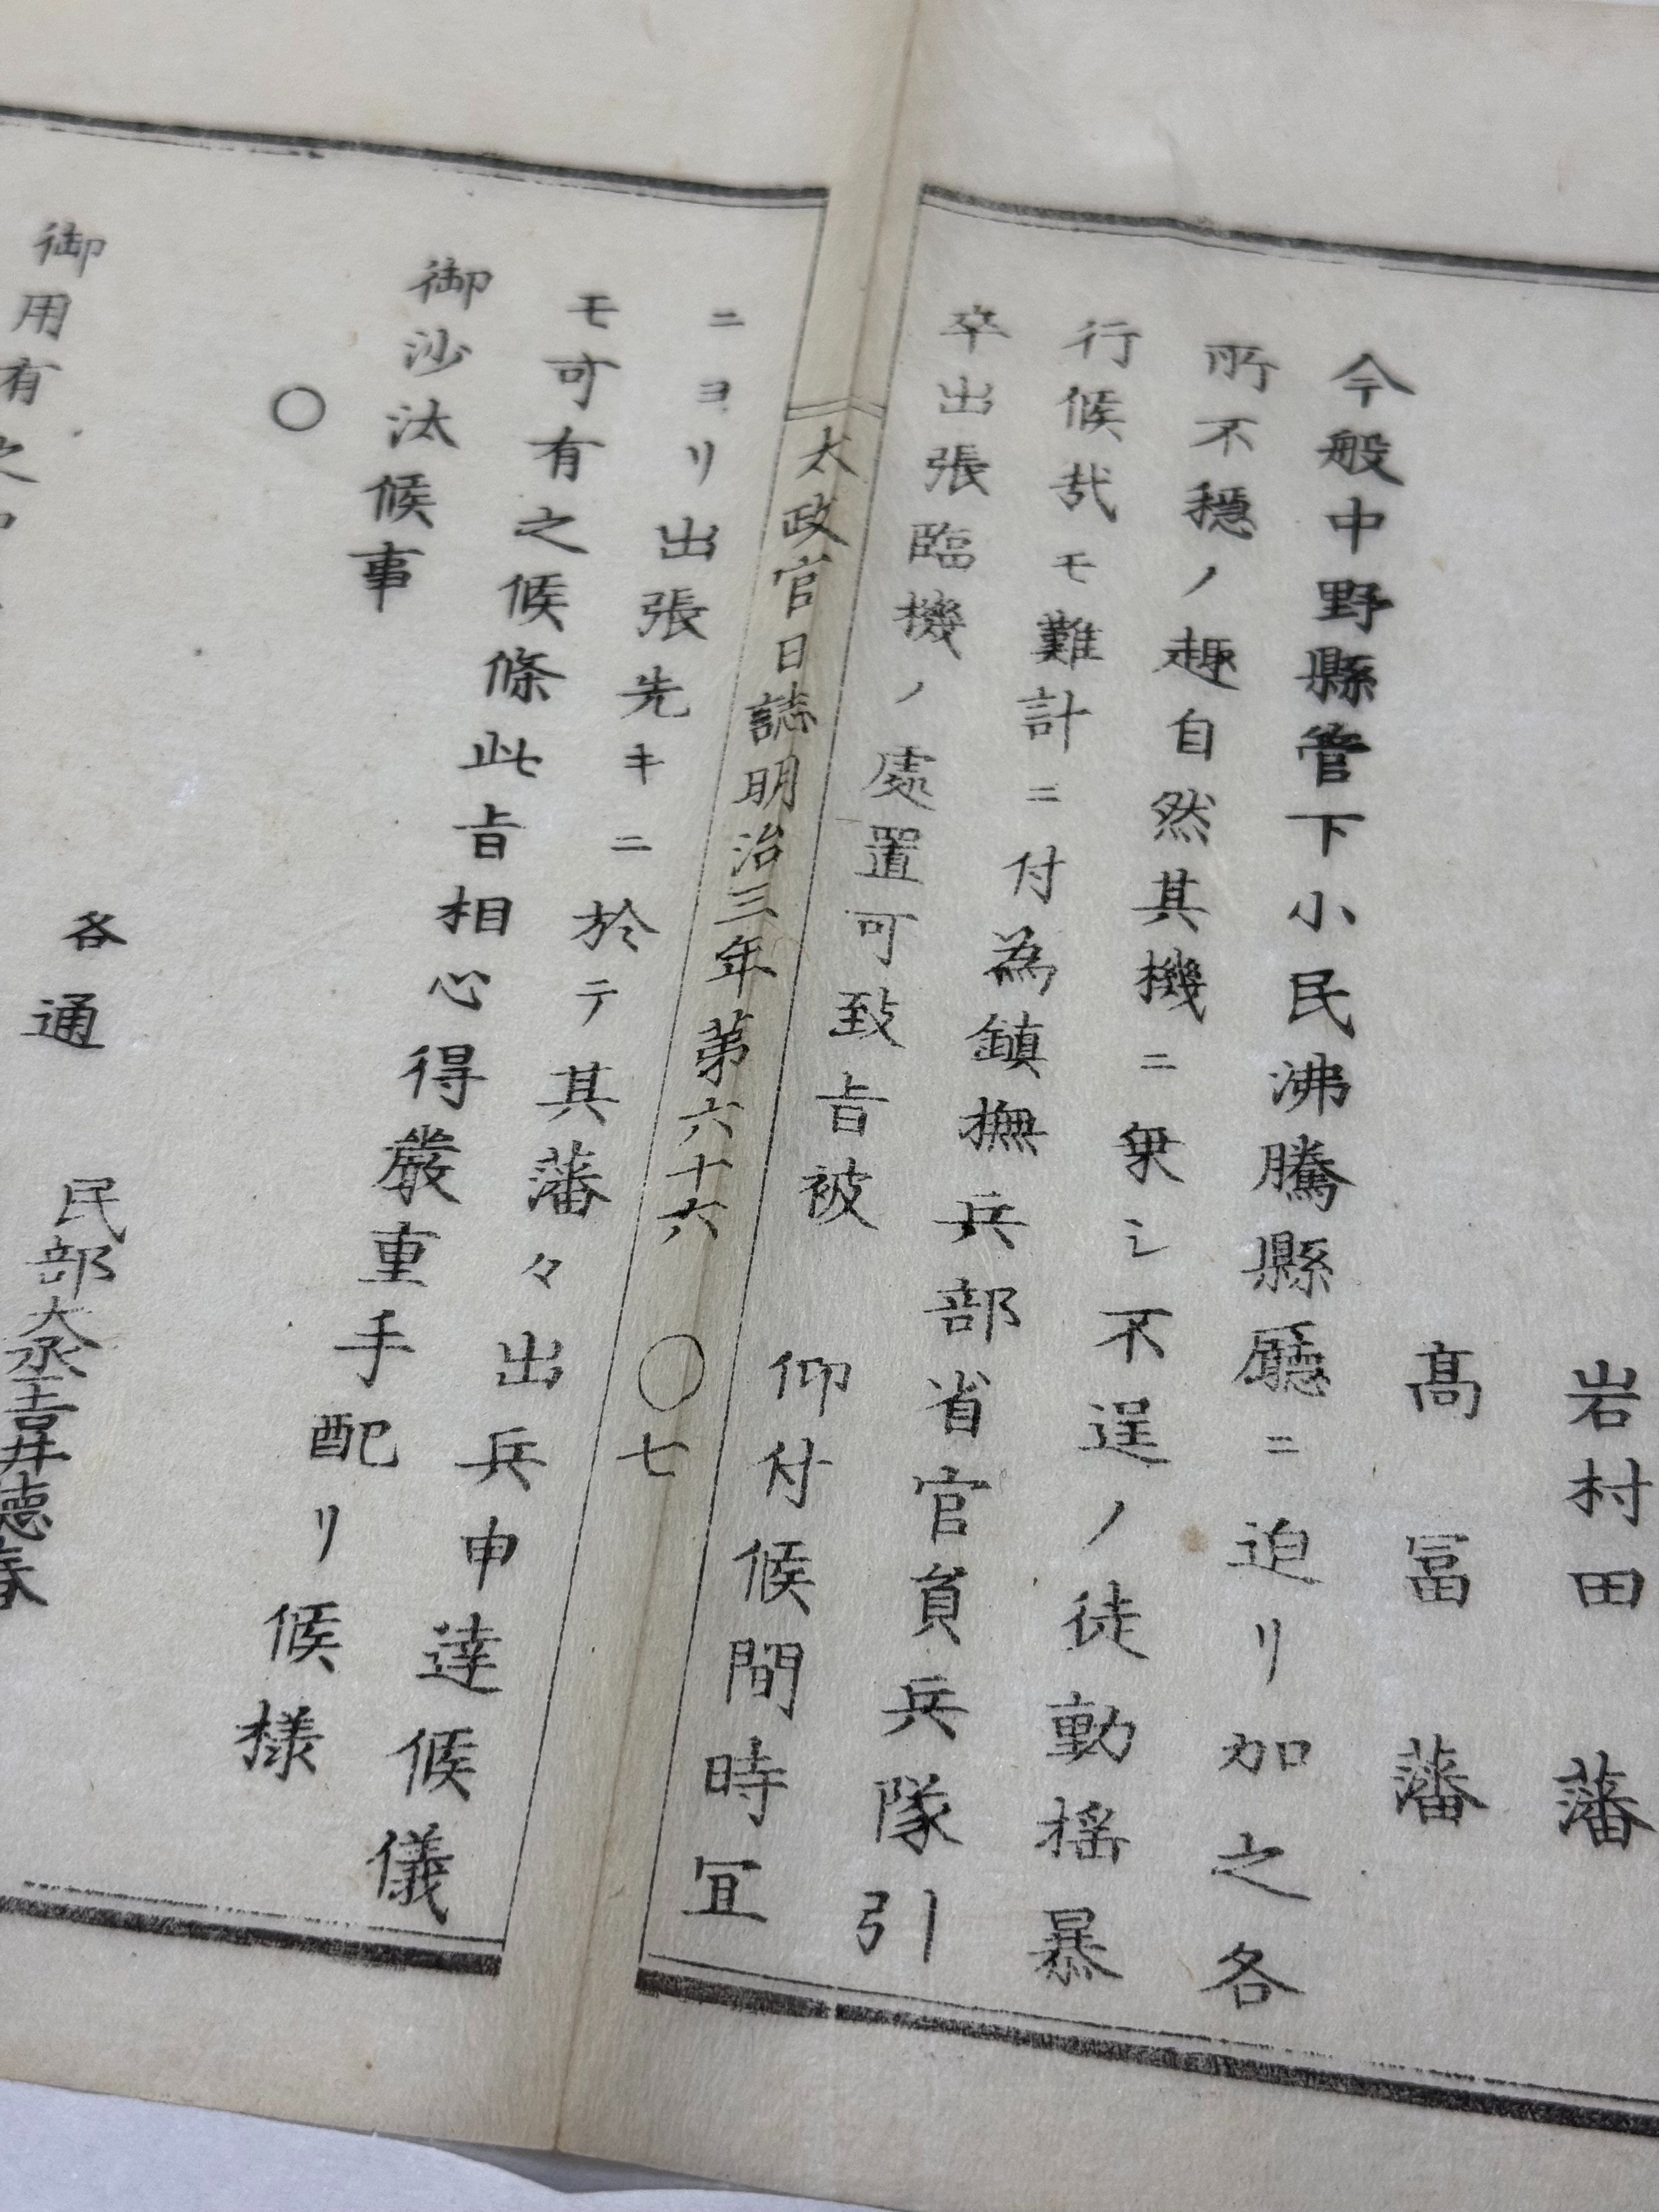 岩村田藩
髙冨藩
今般中野縣管下小民沸騰縣廳ニ迫リ加之各
所不穩ノ趣自然其機ニ乗シ不逞ノ徒動揺暴
行候哉モ難計ニ付為鎮撫兵部省官員兵隊引
卒出張臨機ノ處置可致旨被 仰付候間時冝
太政官日誌明治三年第六十六 〇七
ニヨリ出張先キニ於テ其藩々出兵申達候儀
モ可有之候條此旨相心得嚴重手配リ候様
御沙汰候事
〇
民部大丞吉井德春
各通
御用有之